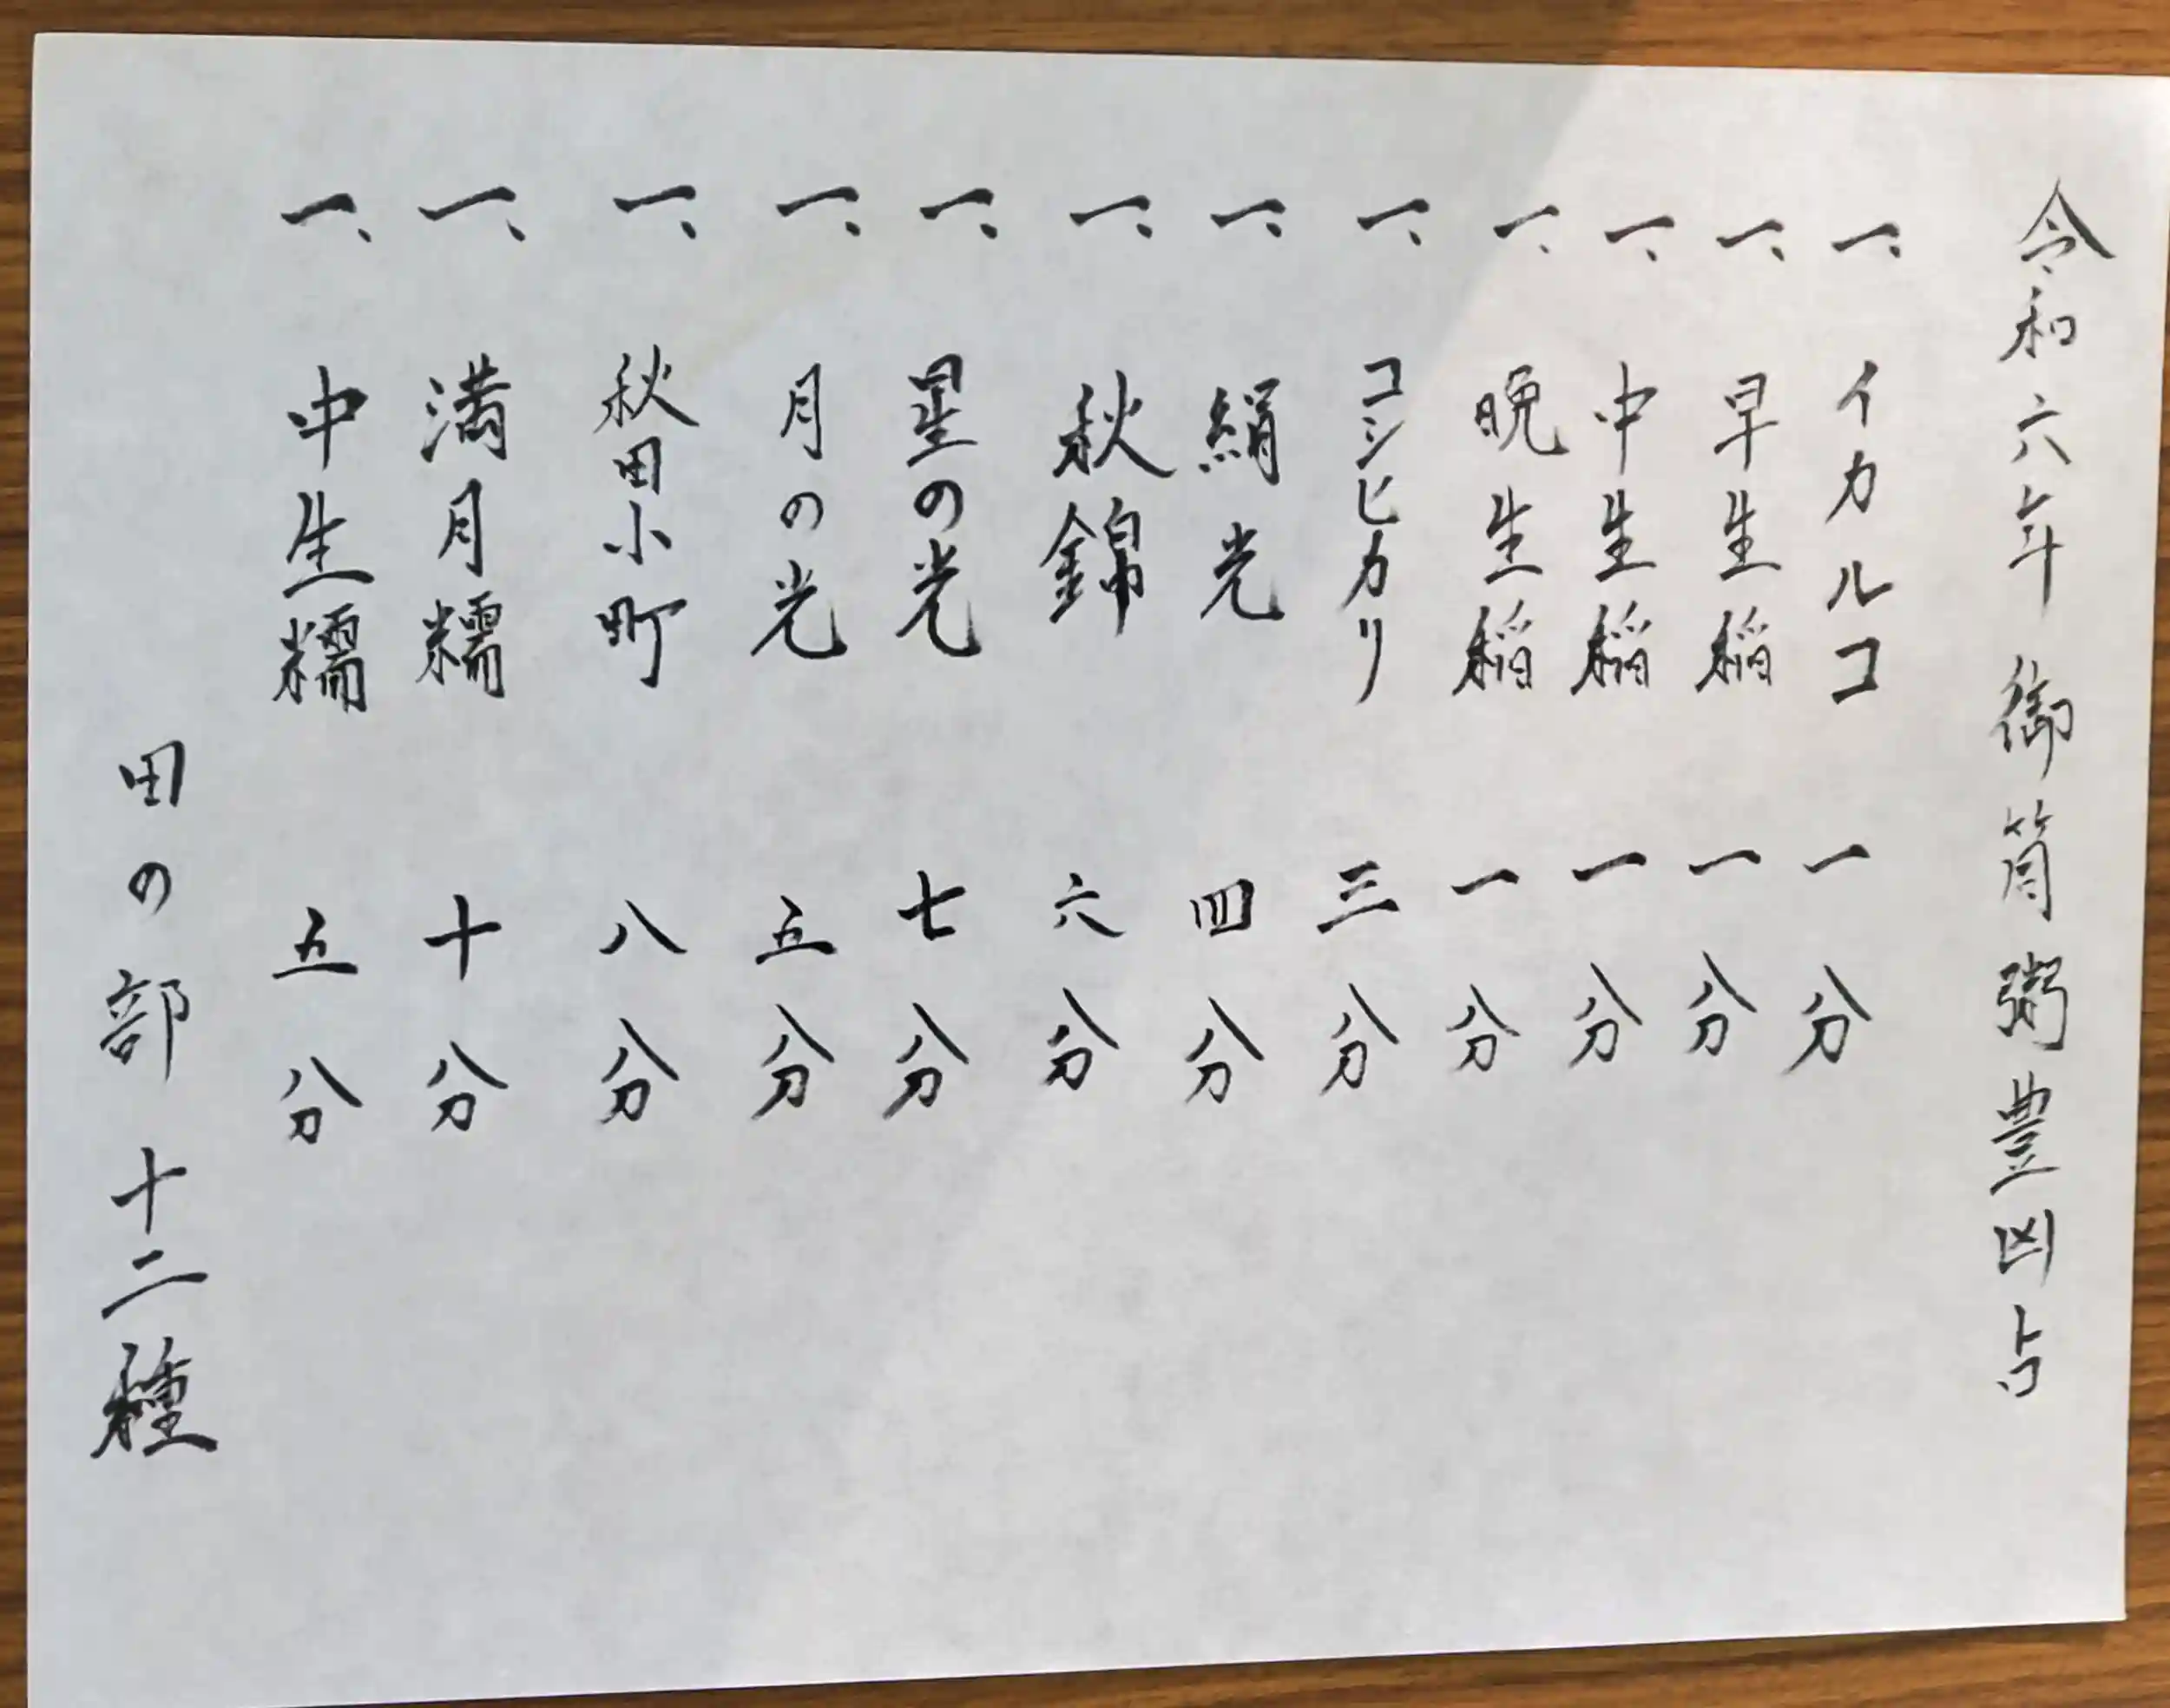 令和六年 御筒粥豊凶占
一、イカルコ 一分
一、早生稲 一分
一、中生稲 一分
一、晩生稲 一分
一、コシヒカリ 三分
一、絹光 四分
一、秋錦 六分
一、星の光 七分
一、月の光 五分
一、秋田小町 八分
一、満月糯 十分
一、中生糯 五分
田の部 十二種